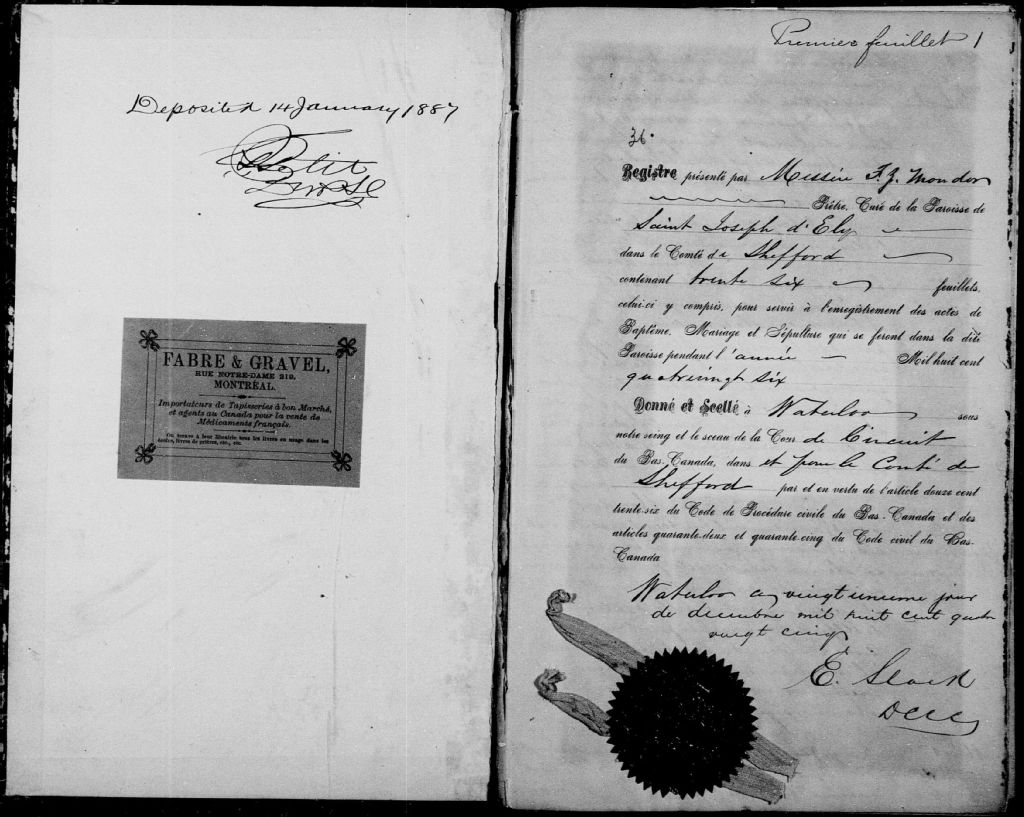 Deposited 14 January 1887
FABRE & GRAVEL,
RUE NOTRE-DAME 219,
MONTRÉAL.
Importateurs de Tapisseries à bon Marché,
et agents au Canada pour la vente de
Médicaments français.
On trouve à leur librairie tous les livres en usage dans les
écoles, livres de prières, etc., etc.
Premier feuillet 1
36
Registre présenté par Messire F. Z. Mondor
Prêtre, Curé de la Paroisse de
Saint Joseph d'Ely
dans le Comté de Shefford
contenant trente six feuillets,
celui-ci y compris, pour servir à l'enregistrement des actes de
Baptême, Mariage et Sépulture qui se feront dans la dite
Paroisse pendant l'année Mil huit cent
quatrevingt six
Donné et Scellé à Waterloo sous
notre seing et le sceau de la Cour de Circuit
du Bas-Canada, dans et pour le Comté de
Shefford par et en vertu de l'article douze cent
trente-six du Code de Procédure civile du Bas-Canada et des
articles quarante-deux et quarante-cinq du Code civil du Bas-
Canada
Waterloo ce vingt unieme jour
de decembre mil huit cent quatre
vingt cinq
E. Slack
DCCC